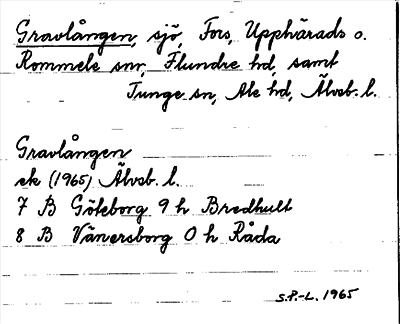 Gravlången, sjö, Fors, Upphärads o.
Rommele snr, Flundre hd, samt
Tunge sn, Ale hd, Älvsb. l.
Gravlången
ek (1965) Älvsb. l.
7 B Göteborg 9 h Bredhult
8 B Vänersborg 0 h Råda
S.P.-L. 1965